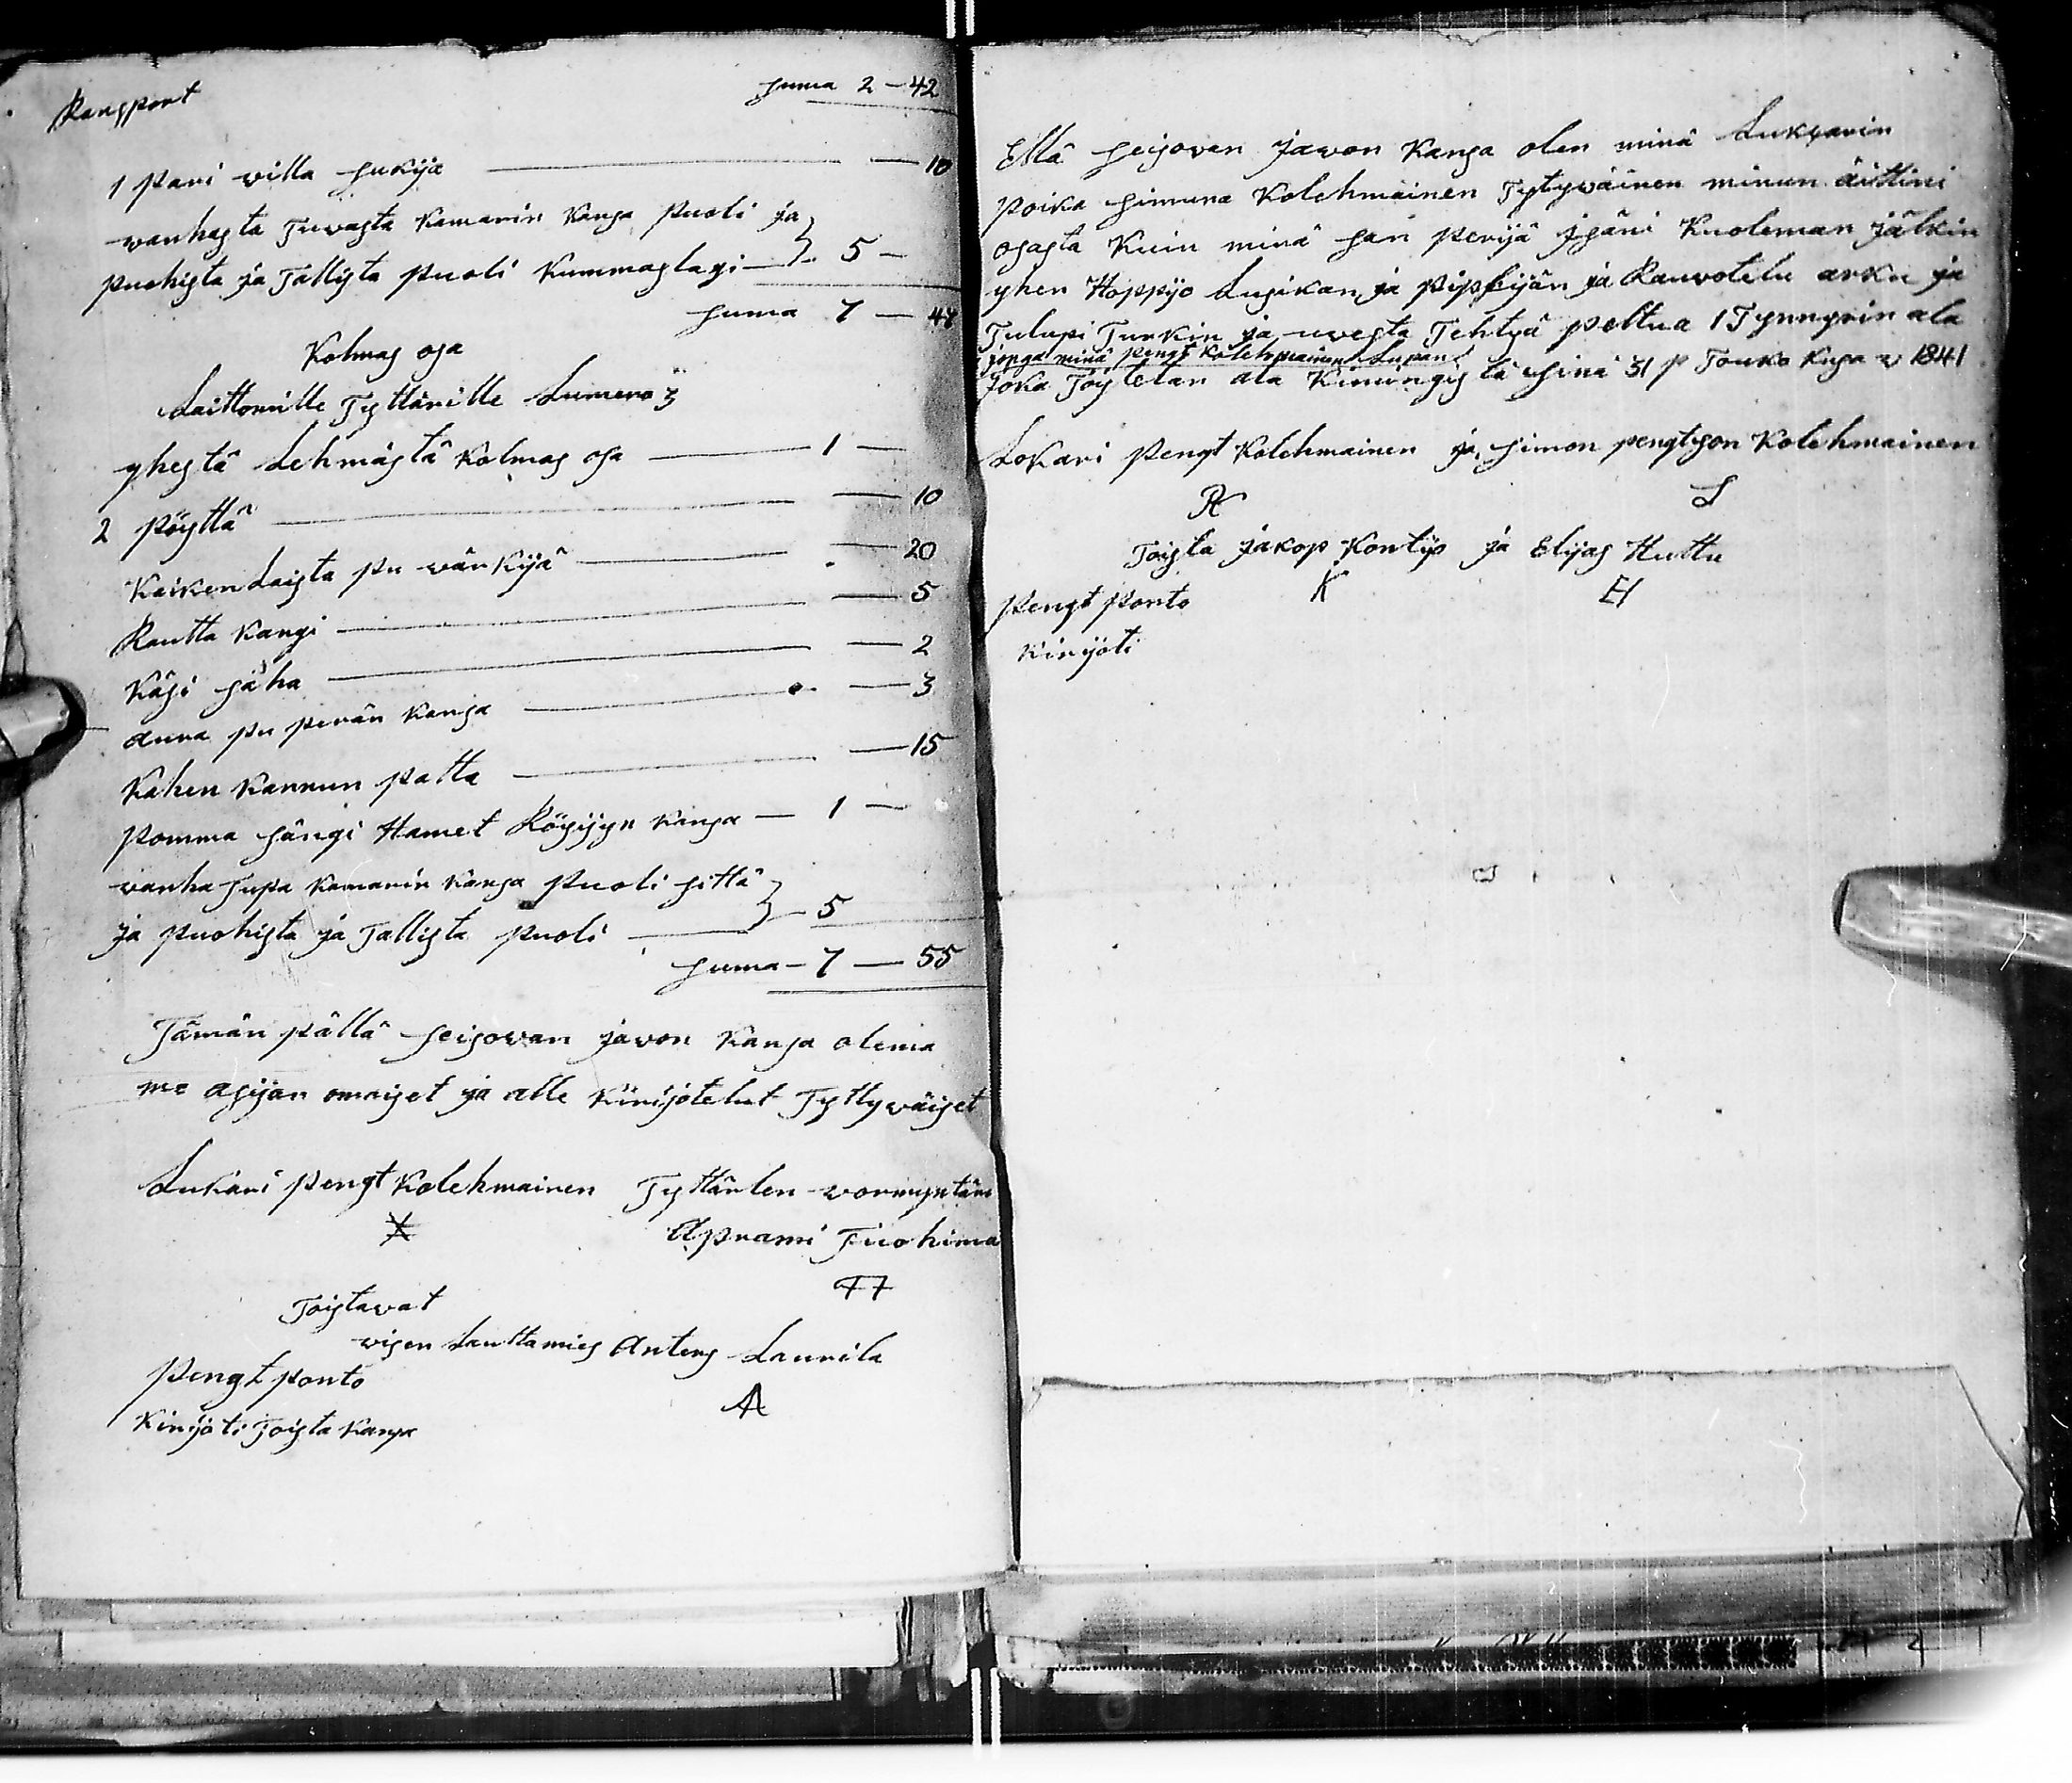 Rangport suma 2 - 42
1 Pari willa sukija - 10
wanhasta Tuwasta Kamarin Kansa Puoli ja
puohista ja Tallista puoli Kummaslagi - 5 -
suma 7 - 47
Kolmas osa
Laittomille Tyttärille Lumero 3
yhestä Lehmästä Kolmas osa - 1 -
2 Pöyttä - 10
Kaikenlaista Pu wärkijä - 20
Rautta Kangi - 5
Käsi säha - 2
aura pu perän Kansa - 3
Kahen Kannun patta - 15
Pomma sängi Hamet Röyijyn Kansa - 1 -
wanha supa Kamarin Kansa Puoli sittä
ja puohista ja Tallista puoli - 5
suma - 7 - 55
Tämän pällä seisowan jawon Kansa olema
me asijan omaiset ja alle Kirijotelut Tyttywäiset
Lukari Pengt Kolehmainen Tyttärlen wormyntäri
Aprami Tiuohima
Toistawat
wisen Lauttamies Anters Laurila
Pengt Ponto A
Kirijöti Toista Kansa
Ellä seisowan Jawon Kansa olen minä Lukkarin
poika simuna Kolehmainen Tytywäinen minun äittini
osasta Kuin minä san perijä jsäni Kuoleman jälkin
yhen Hoppijo Lusikan ja pipplijän ja Rauwotelu arku ja
Tulupi Turkin ja uwesta Tehtyä peltua 1 Tynnyrin ala
jonga minä pengt Kolehmainen Lupan
Joka Töytetän ala Kiningistä sinä 31 p Touko Kusa w 1841
Lokari Pengt Kolehmainen ja simon pengtson Kolehmainen
R S
Toista jakop Kontijo ja Elijas Huttu
Pengt Ponto K EH
Kirijöti